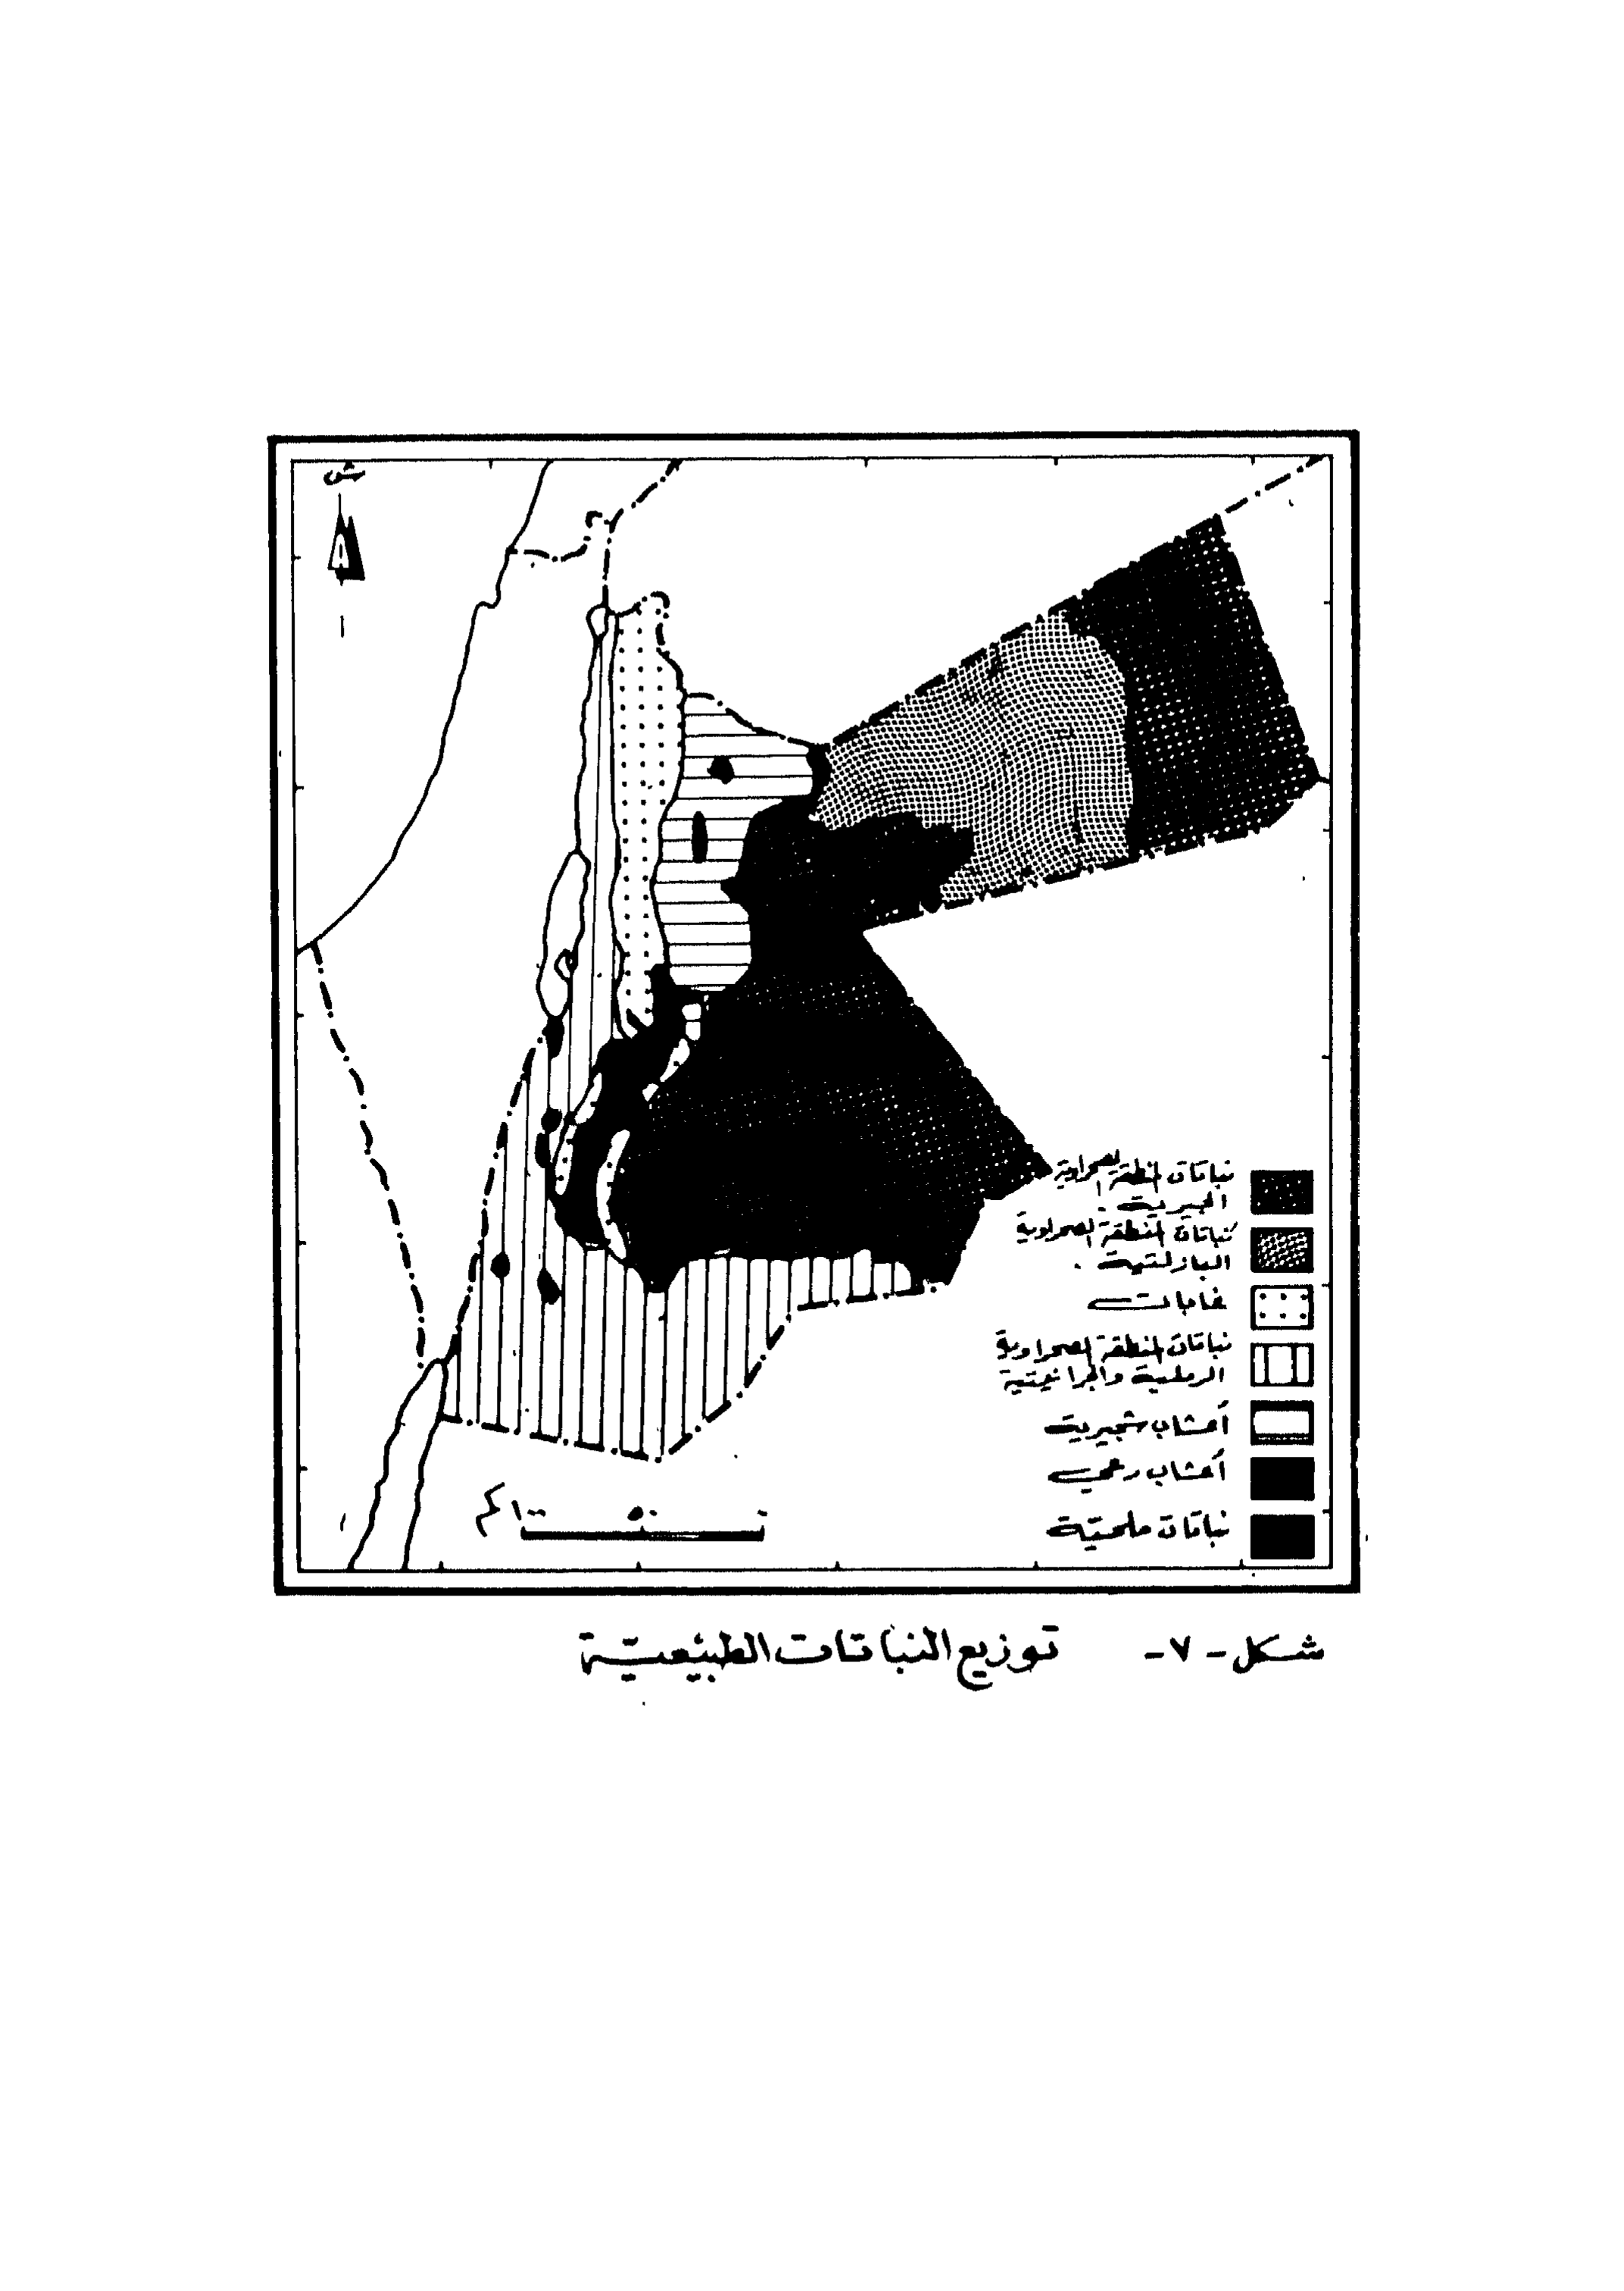 ش
نباتات المنطقة الصحراوية
الجيرية .
نباتات المنطقة الصحراوية
البازلتية .
غابات
نباتات المنطقة الصحراوية
الرملية والجرانيتية
أعشاب شجيرية
أعشاب رعي
نباتات ملحية
٠ ٥٠ ١٠٠ كم
شكل - ٧ - توزيع النباتات الطبيعيّة